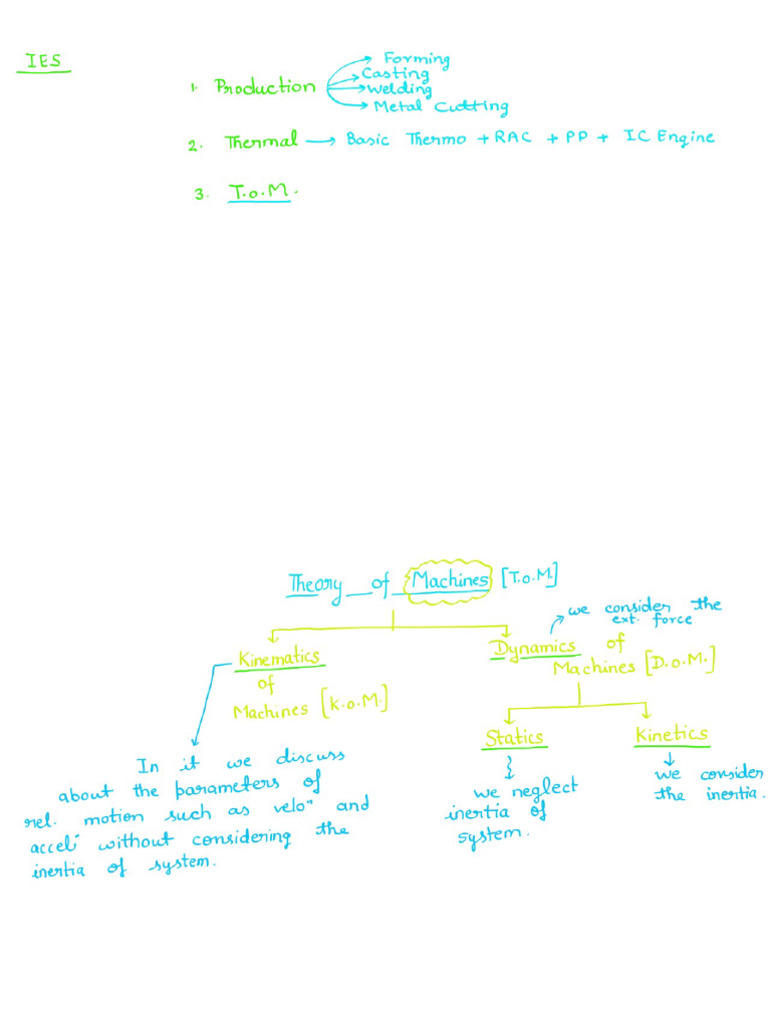 IES
Forming
Casting
1. Production
Welding
Metal Cutting
2. Thermal Basic Thermo + RAC + PP + IC Engine
3. T.O.M.
Theory of Machines [T.O.M]
we consider the
ext. force
Kinematics
of
Machines [K.O.M.]
Dynamics of
Machines [D.O.M.]
Statics
Kinetics
In it we discuss
about the parameters of
rel. motion such as veloⁿ and
accelⁿ without considering the
inertia of system.
we neglect
inertia of
system.
we consider
the inertia.